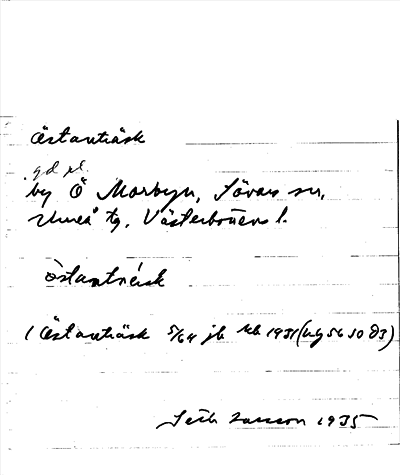 Östanträsk
gd
by Ö Morbyn, Sävars sn,
Umeå tg, Västerbottens l.
östantrésk
( Östanträsk 5/64 jb 1931 (
Seth Larsson 1935